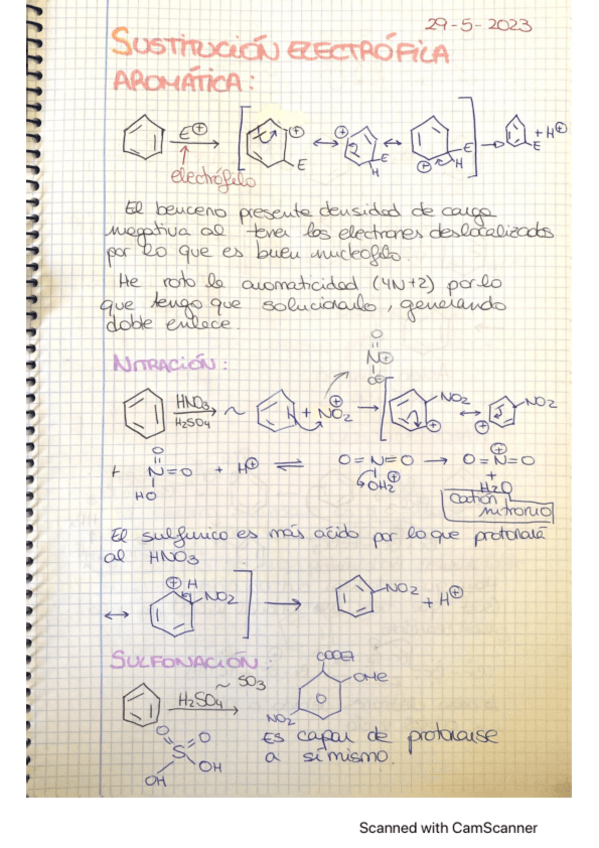 29-5-2023
SUSTITUCIÓN ELECTRÓFILA
AROMÁTICA:
E⊕ [ ⊕ E ↔ ⊕ E H ↔ ⊕ E H ] → E + H⊕
electrófilo
El benceno presenta densidad de carga
negativa al tener los electrones deslocalizados
por lo que es buen nucleófilo.
He roto la aromaticidad (4N+2) por lo
que tengo que solucionarlo, generando
doble enlace.
NITRACIÓN:
HNO3
H2SO4
~ + NO2 ⊕ → [ NO2 ⊕ ↔ NO2 ⊕
+ O=N=O HO + H⊕ ⇌ O=N=O OH2⊕ → O=N=O ⊕
+
H2O
catión
nitronio
El sulfúrico es más ácido por lo que protonará
al HNO3
↔ ⊕ H NO2 ] → NO2 + H⊕
SULFONACIÓN:
H2SO4 ~ SO3
COOEt
OMe
NO2
O O S OH OH
Es capaz de protonarse
a sí mismo.
Scanned with CamScanner